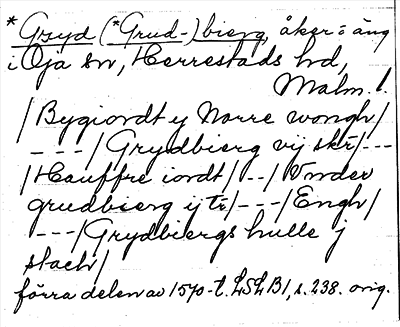 *Gryd (*Grud-) bierg, åker o äng
i Öja sn, Herrestads hd,
Malm. l.
/Bygiordt y Norre wongh/
---/Grydbierg vij skr/---
/Hauffre iordt/--/Vnder
grudbierg ij tr/---/Engh/
---/Grydbiergs hulle j
stach/
förra delen av 1570-t. LSLB1, s. 238. orig.